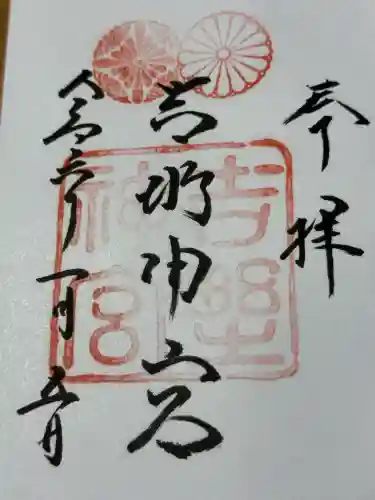 奉拝
吉野神宮
令和六年一月五日
吉埜神宮